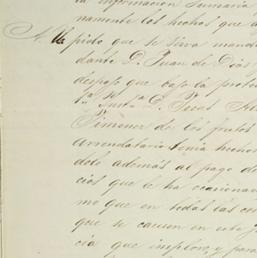 la informacion sumaria
namente los hechos que a
pido que se sirva mand
dante D. Juan de Dios
despojo que bajo la prote
Justa D. José
Jimenez de los frutos
arrendatario tenia hechos
dole además al pago de
cios que le ha ocasionad
mo que en todas las cos
que se causen en este j
cia que imploro, y para